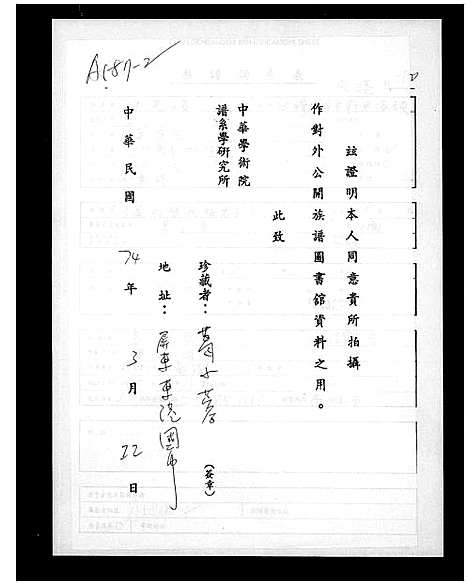 A587-2
茲證明本人同意貴所拍攝
作對外公開族譜圖書館資料之用。
此致
中華學術院
譜系學研究所
珍藏者：
(簽章)
地址：屏東東港國中
中華民國 74 年 3 月 22 日